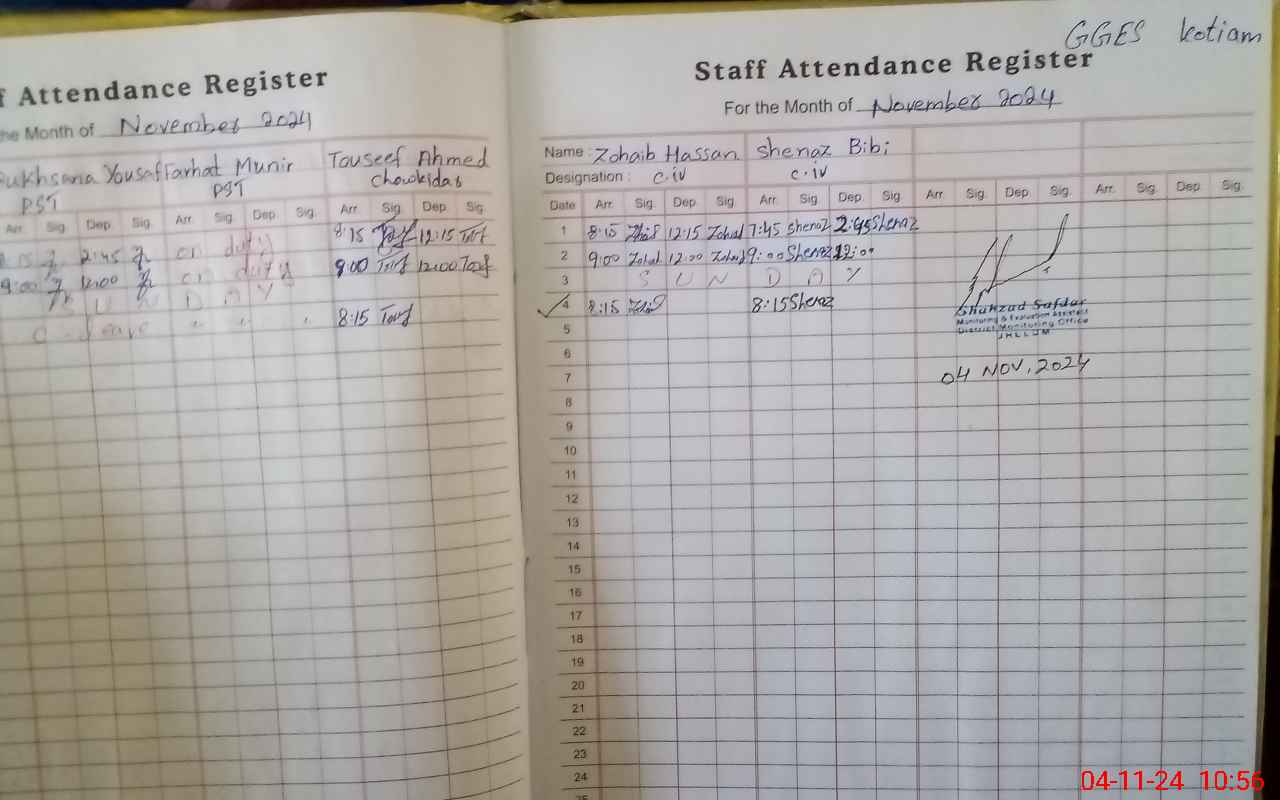 GGES Kotiam
f Attendance Register
he Month of November 2024
ukhsana Yousaf Farhat Munir Touseef Ahmed
PST PST Chowkidar
Arr. Sig. Dep. Sig. Arr. Sig. Dep. Sig. Arr. Sig. Dep. Sig.
2:45 on duty 8:15 12:15
9:00 12:00 on duty 9:00 12:00
U N D A Y
C - leave " " " 8:15
Staff Attendance Register
For the Month of November 2024
Name : Zohaib Hassan Shenaz Bibi
Designation : C.iv C.iv
Date Arr. Sig. Dep. Sig. Arr. Sig. Dep. Sig. Arr. Sig. Dep. Sig. Arr. Sig. Dep. Sig.
1 8:15 12:15 7:45 Shenaz 2:45 Shenaz
2 9:00 12:00 9:00 Shenaz 12:00
3 S U N D A Y
4 8:15 8:15 Shenaz
5
6
7
8
9
10
11
12
13
14
15
16
17
18
19
20
21
22
23
24
25
Shahzad Safdar
Monitoring & Evaluation
District Monitoring Office
JHELUM
04 NOV, 2024
04-11-24 10:56